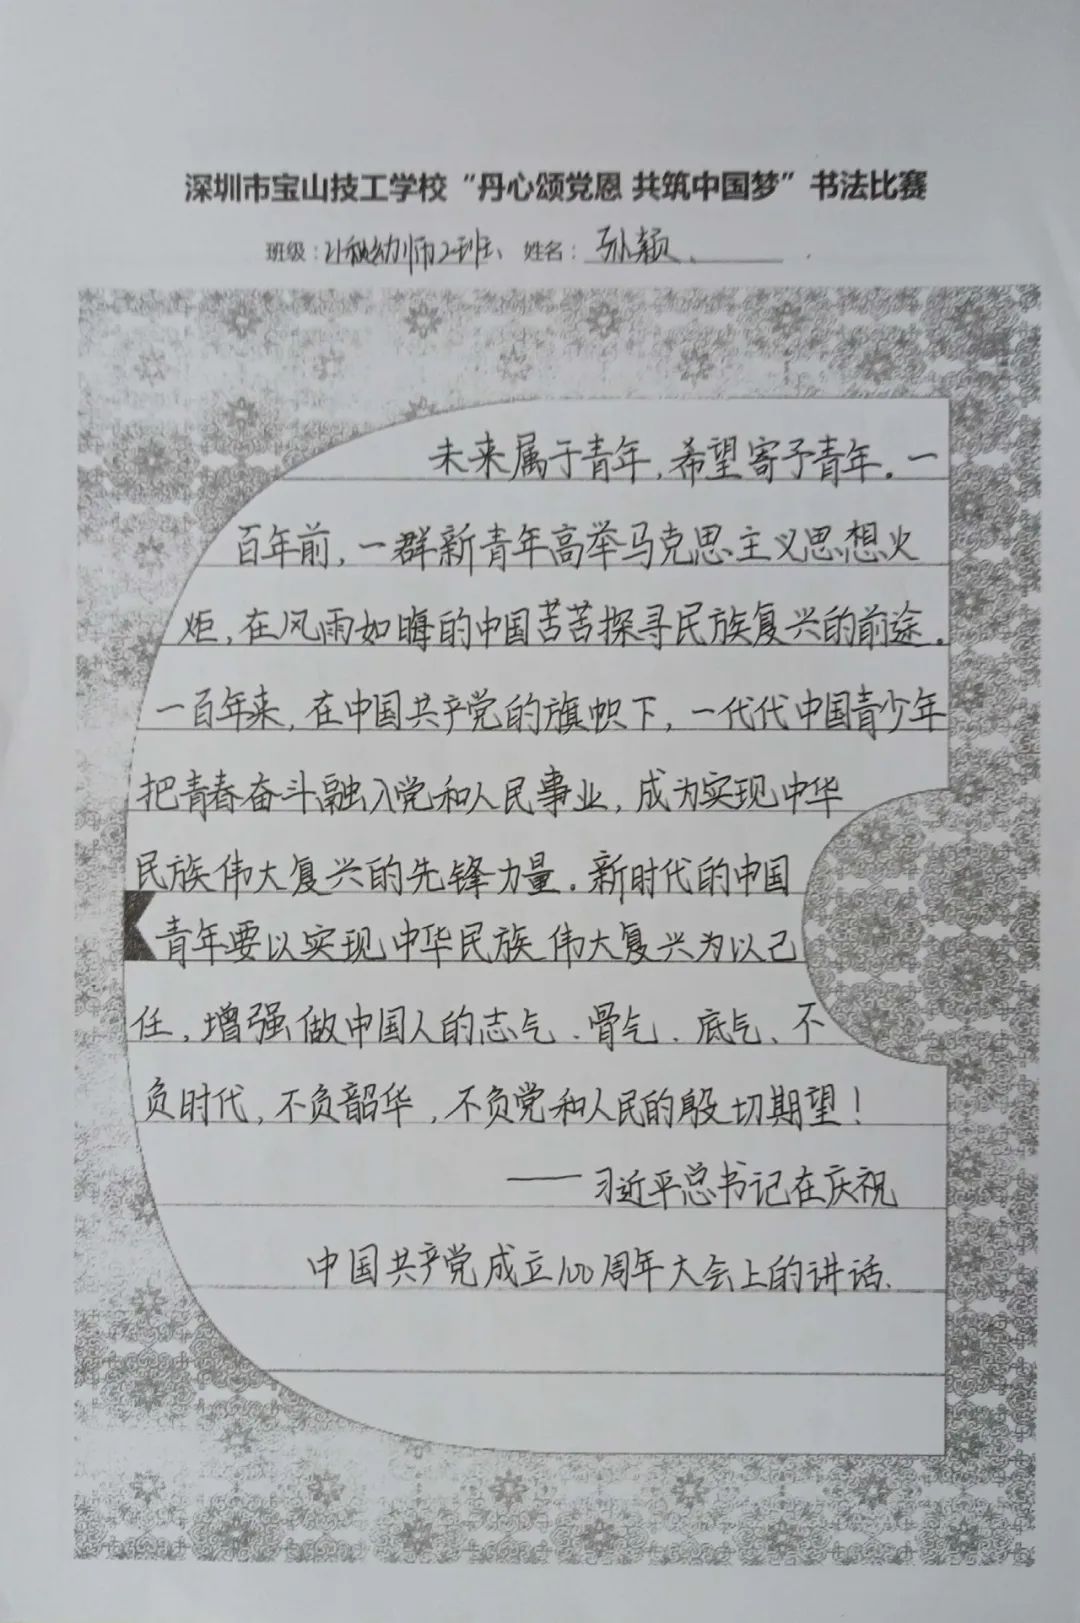 深圳市宝山技工学校“丹心颂党恩 共筑中国梦”书法比赛
班级：21秋幼师2班 姓名：孙颖
未来属于青年，希望寄予青年。一
百年前，一群新青年高举马克思主义思想火
炬，在风雨如晦的中国苦苦探寻民族复兴的前途。
一百年来，在中国共产党的旗帜下，一代代中国青少年
把青春奋斗融入党和人民事业，成为实现中华
民族伟大复兴的先锋力量。新时代的中国
青年要以实现中华民族伟大复兴为以己
任，增强做中国人的志气、骨气、底气、不
负时代，不负韶华，不负党和人民的殷切期望！
——习近平总书记在庆祝
中国共产党成立100周年大会上的讲话.